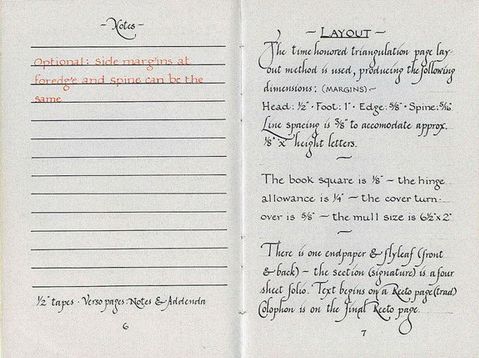 ~ Notes ~
Optional: Side margins at
foredge and spine can be the
same
½" tapes · Verso pages: Notes & Addenda
6
~ LAYOUT ~
The time honored triangulation page lay-
out method is used, producing the following
dimensions: (MARGINS) ~
Head: ½" · Foot: 1" · Edge: ⅝" · Spine: 5/16"
Line spacing is ⅜" to accomodate approx.
⅛" "x" height letters.
The book square is ⅛" ~ the hinge
allowance is ¼" ~ the cover turn-
over is ⅝" ~ the mull size is 6½" x 2"
There is one endpaper & flyleaf (front
& back) ~ the section (signature) is a four
sheet folio. Text begins on a Recto page (trad)
Colophon is on the final Recto page.
7